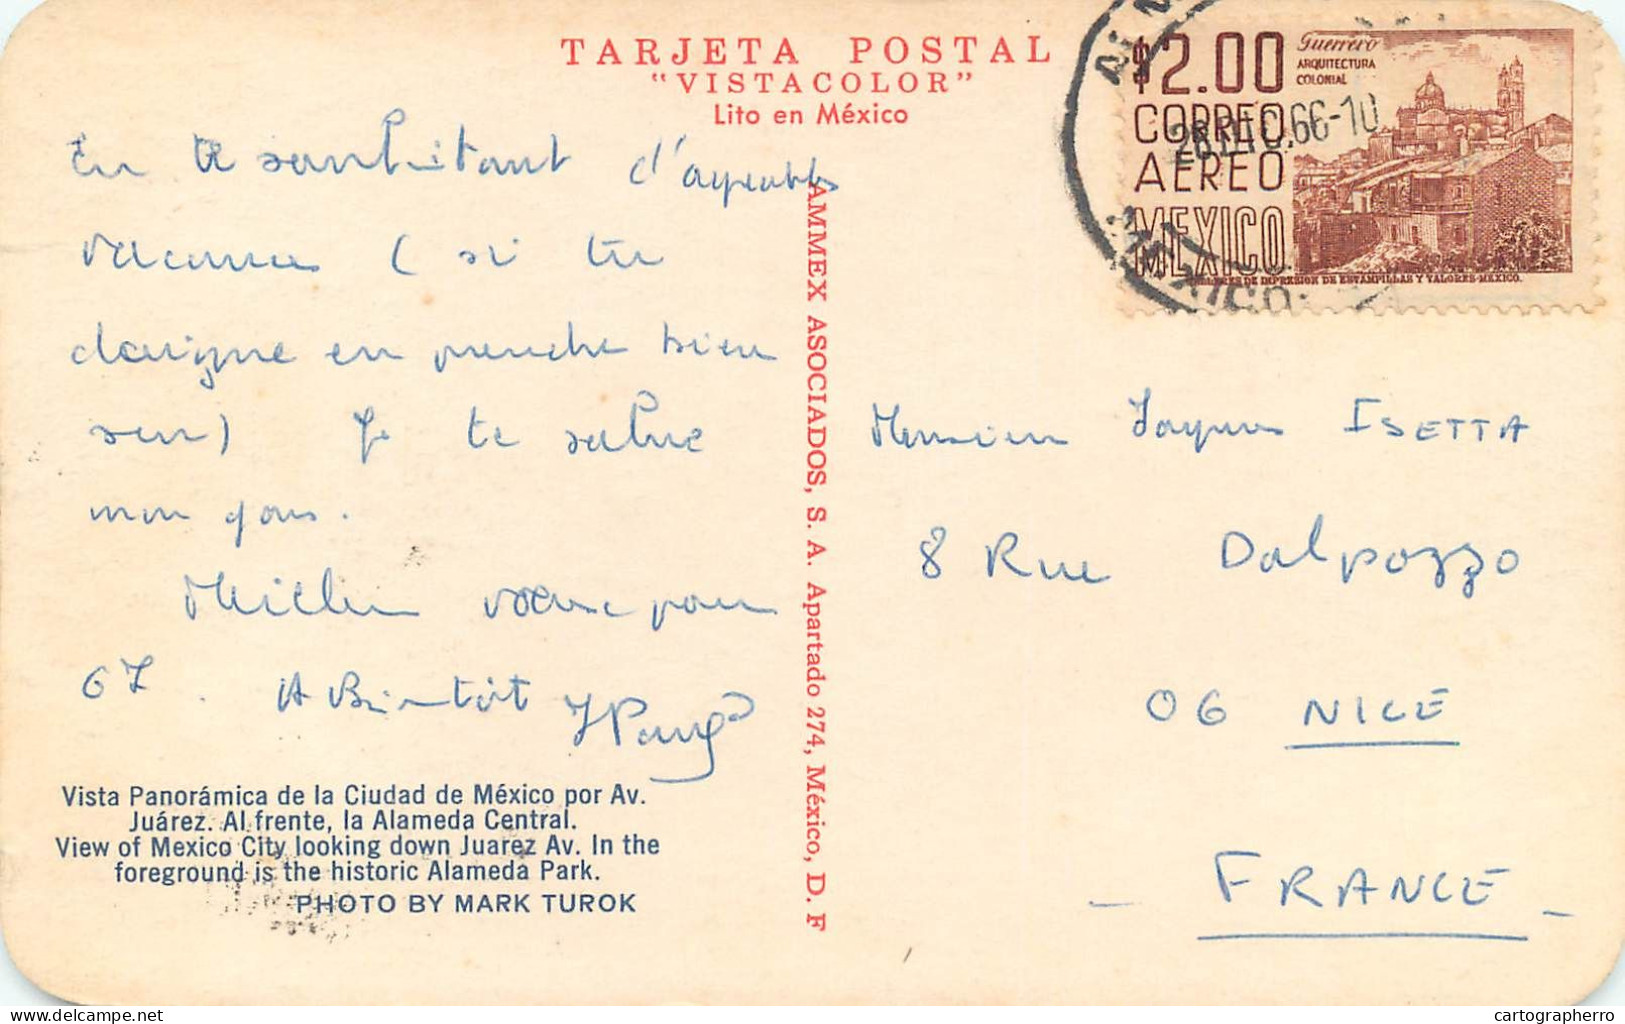 TARJETA POSTAL
"VISTACOLOR"
Lito en México
En te souhaitant d'agréables
vacances ( si tu
daigne en prendre bien
sûr) Je te salue
mon gars.
Meilleurs vœux pour
67. A Bientôt
Vista Panorámica de la Ciudad de México por Av.
Juárez. Al frente, la Alameda Central.
View of Mexico City looking down Juarez Av. In the
foreground is the historic Alameda Park.
PHOTO BY MARK TUROK
AMMEX ASOCIADOS, S. A. Apartado 274, México, D. F
$2.00
CORREO
AEREO
MEXICO
Guerrero
ARQUITECTURA
COLONIAL
TALLERES DE IMPRESION DE ESTAMPILLAS Y VALORES-MEXICO.
28 DIC. 66-10
Monsieur Jacques ISETTA
8 Rue Dalpozzo
06 NICE
- FRANCE -
delcampe.net
cartographerro